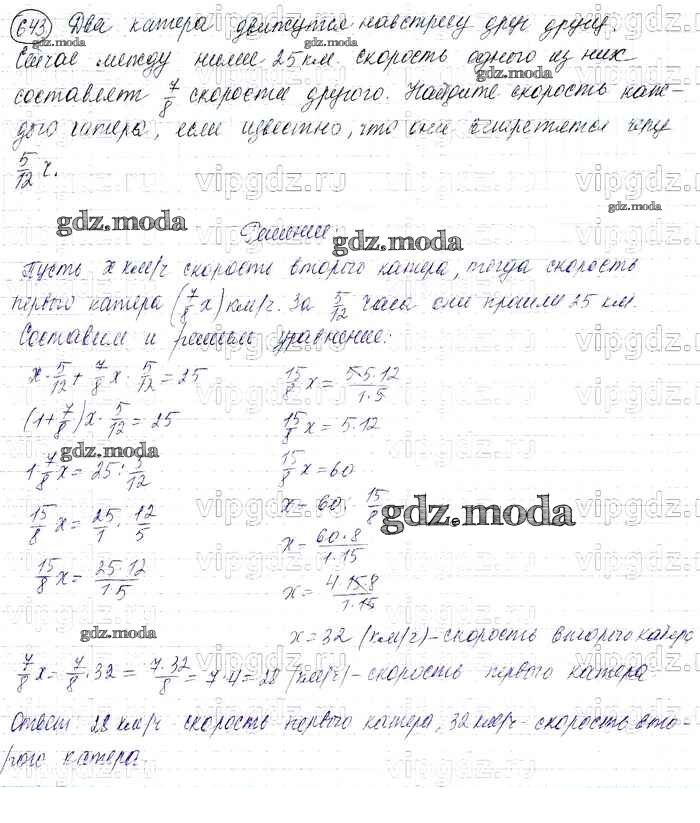 643) Два катера движутся навстречу друг другу.
Сейчас между ними 25 км. скорость одного из них
составляет 7/8 скорости другого. Найдите скорость каж-
дого катера, если известно, что они встретятся через
5/12 ч.
gdz.moda
Решение:
gdz.moda
Пусть x км/ч скорости второго катера, тогда скорость
первого катера (7/8 x) км/ч. За 5/12 часа они прошли 25 км.
Составим и решим уравнение:
x · 5/12 + 7/8 x · 5/12 = 25
(1 + 7/8) x · 5/12 = 25
gdz.moda
1 7/8 x = 25 : 5/12
15/8 x = 25/1 · 12/5
15/8 x = 25·12/1·5
15/8 x = 5·5·12/1·5
15/8 x = 5·12
15/8 x = 60
x = 60 : 15/8
gdz.moda
x = 60·8/1·15
x = 4·15·8/1·15
gdz.moda
x = 32 (км/ч) – скорость второго катера
7/8 x = 7/8 · 32 = 7·32/8 = 7·4 = 28 (км/ч) – скорость первого катера
Ответ: 28 км/ч скорость первого катера, 32 км/ч – скорость вто-
рого катера.
vipgdz.ru